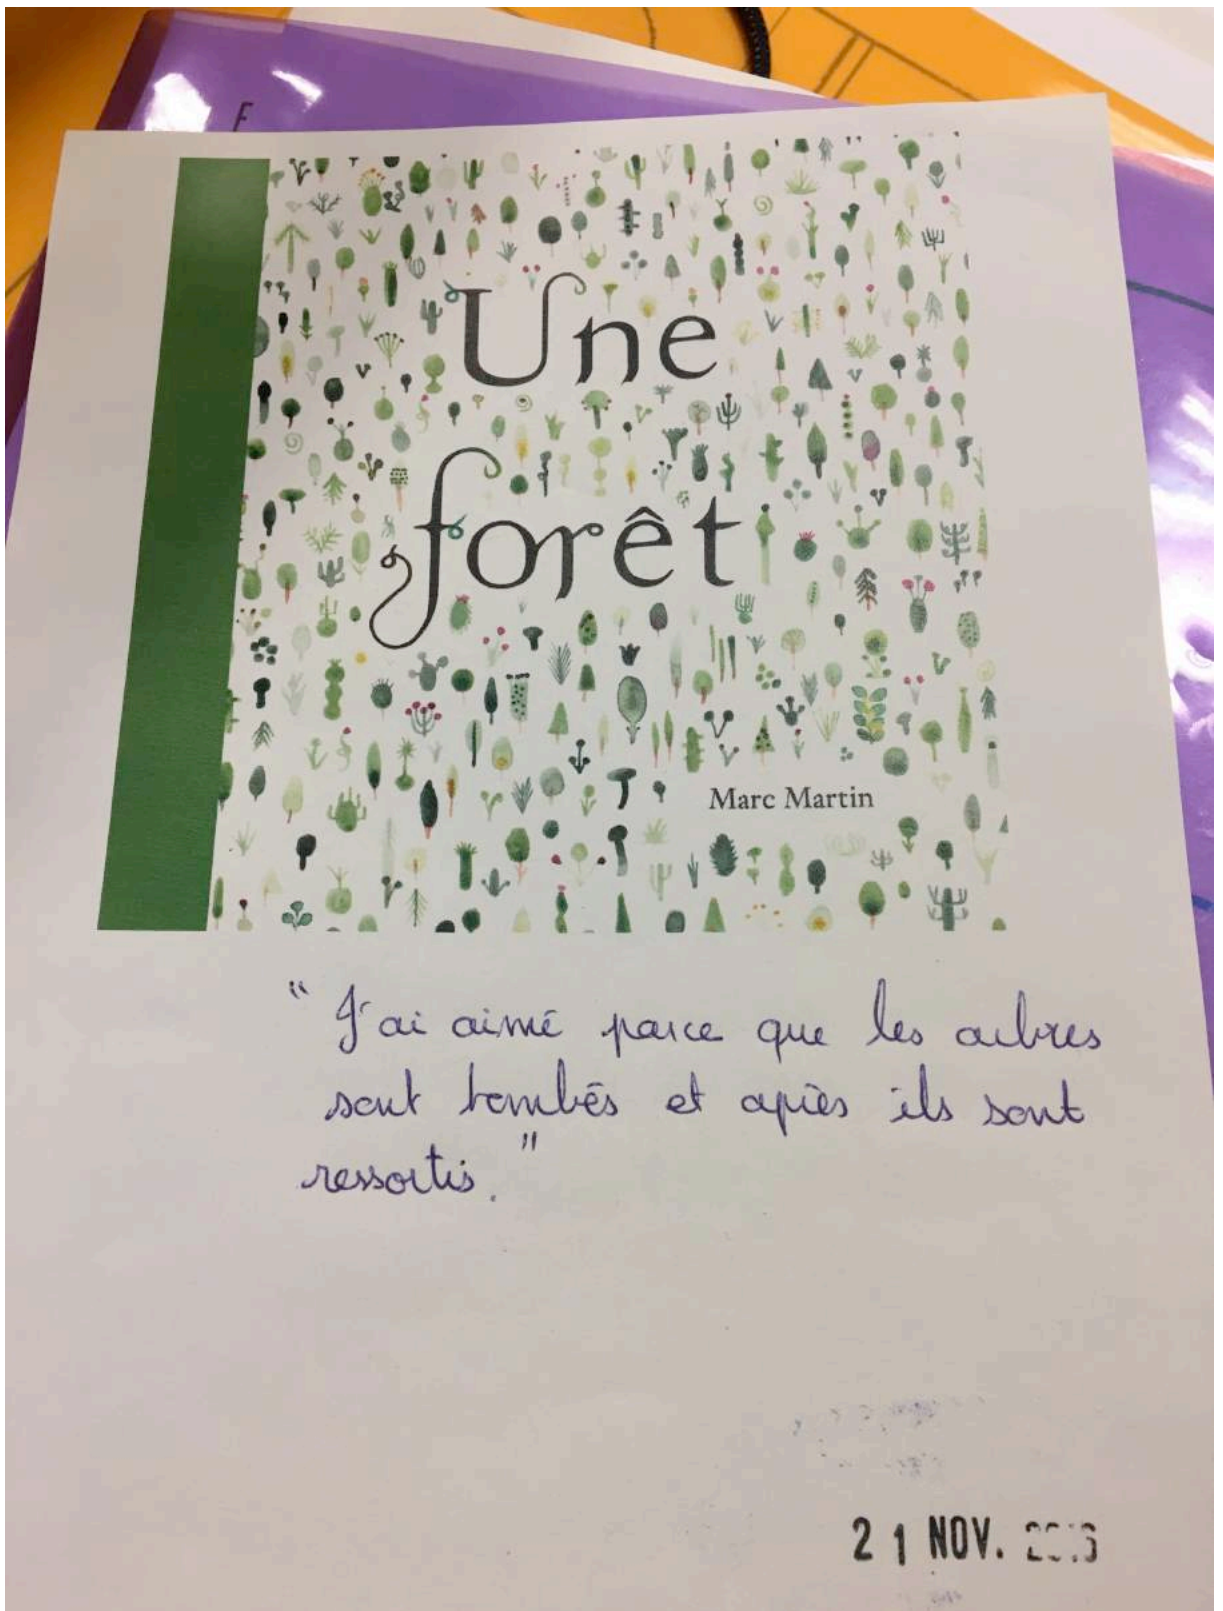 F
Une
forêt
Marc Martin
" J'ai aimé parce que les arbres
sont tombés et après ils sont
ressortis. "
21 NOV.